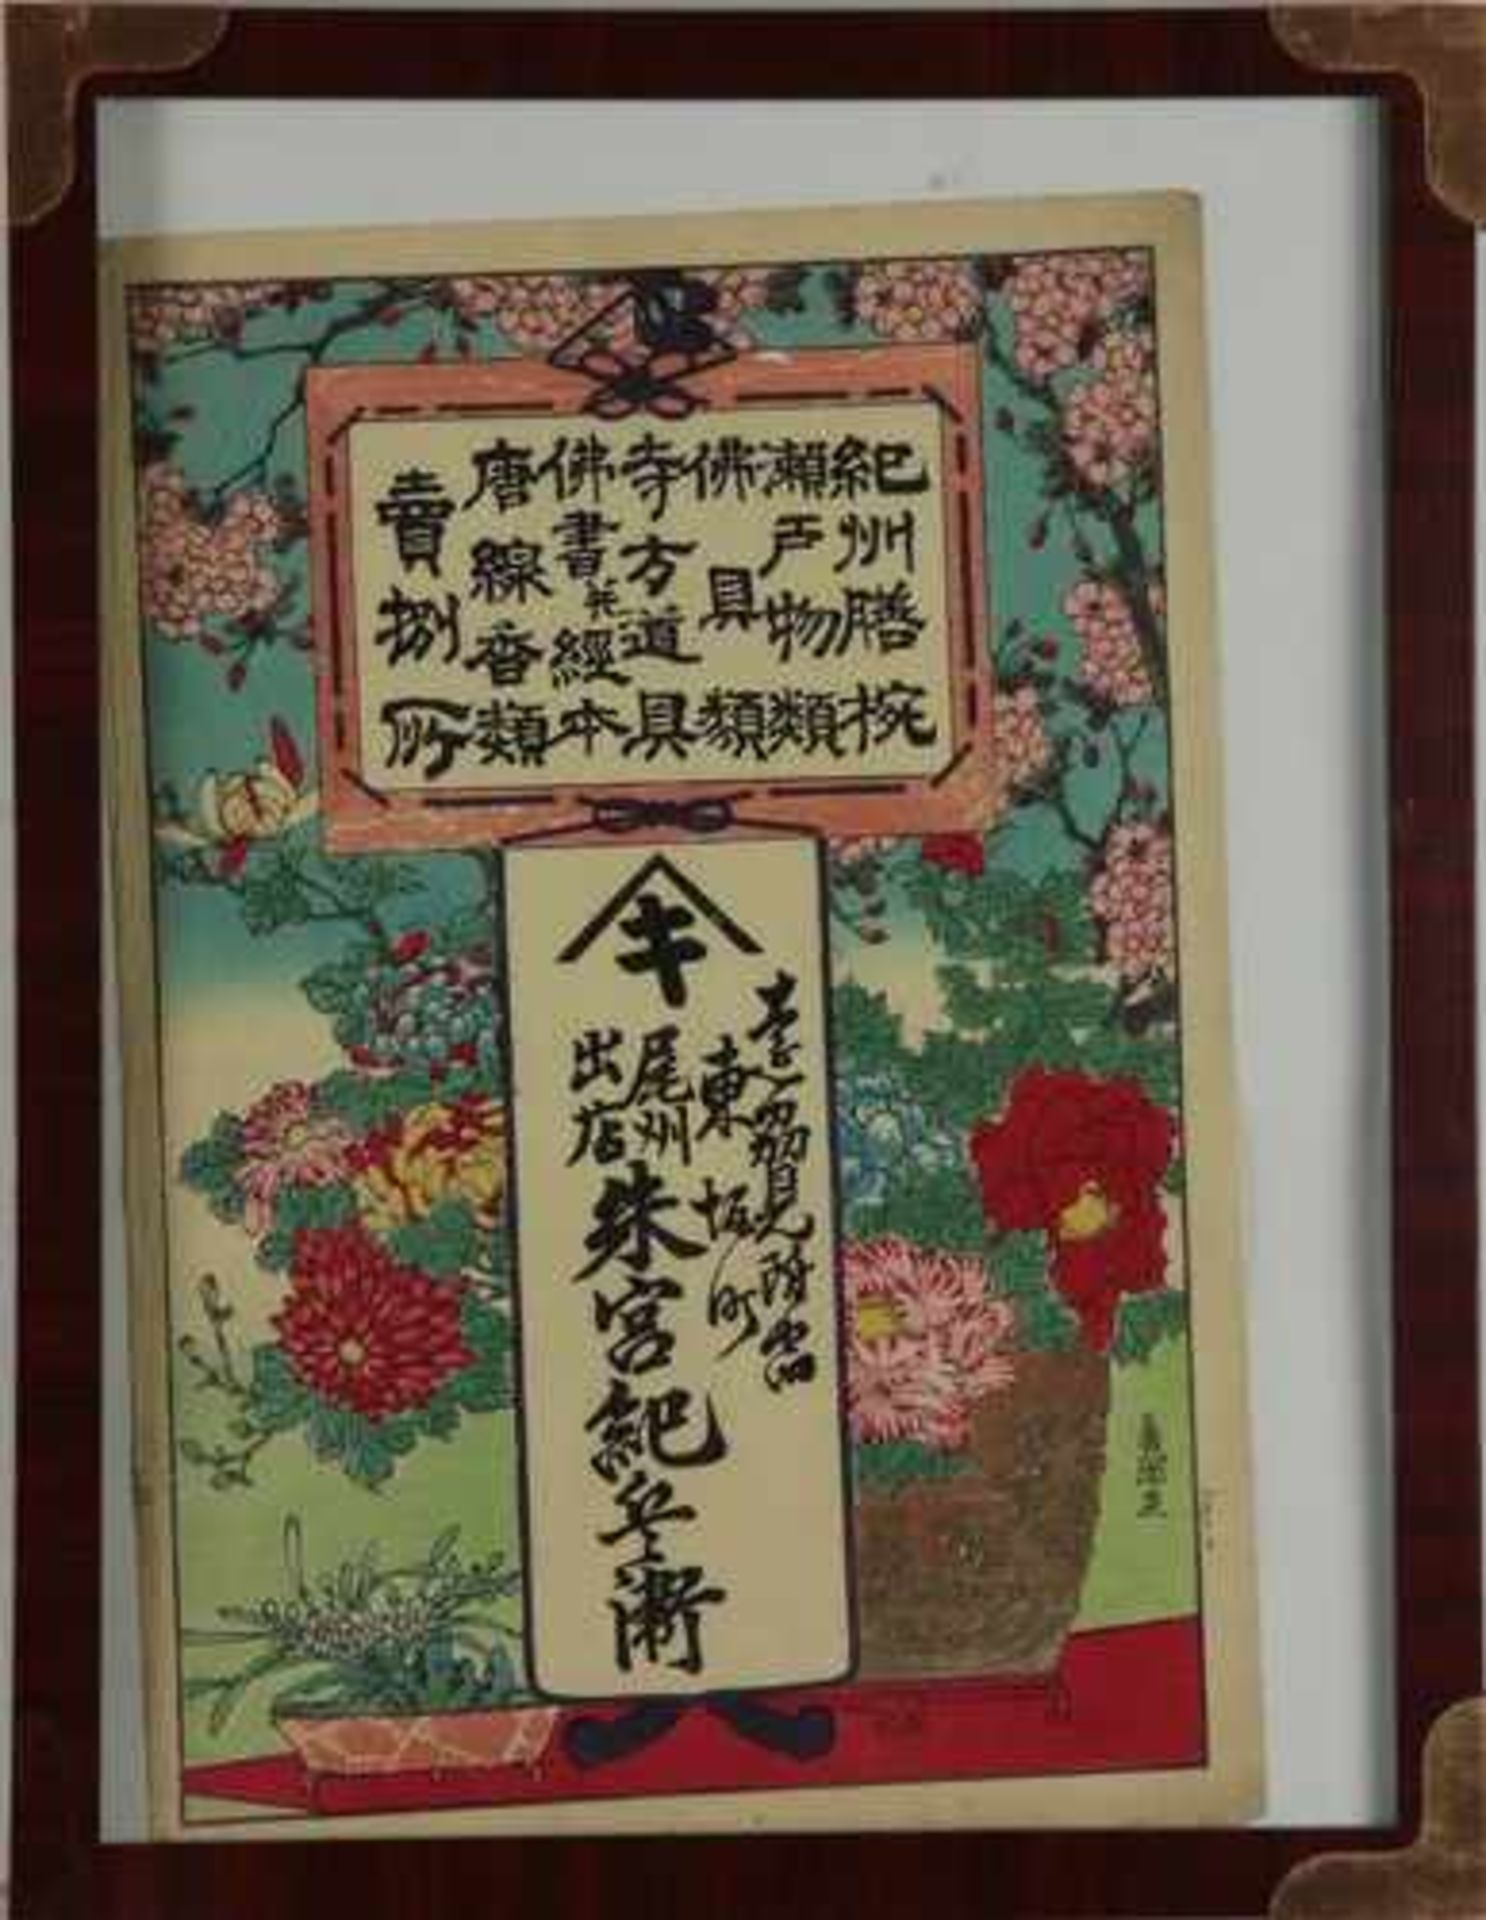 紀州膳椀
瀬戸物類
佛具類
寺方道具
佛書并經本
唐線香類
賣捌所
キ
東坂町
尾州
出店
朱宮紀兵衛